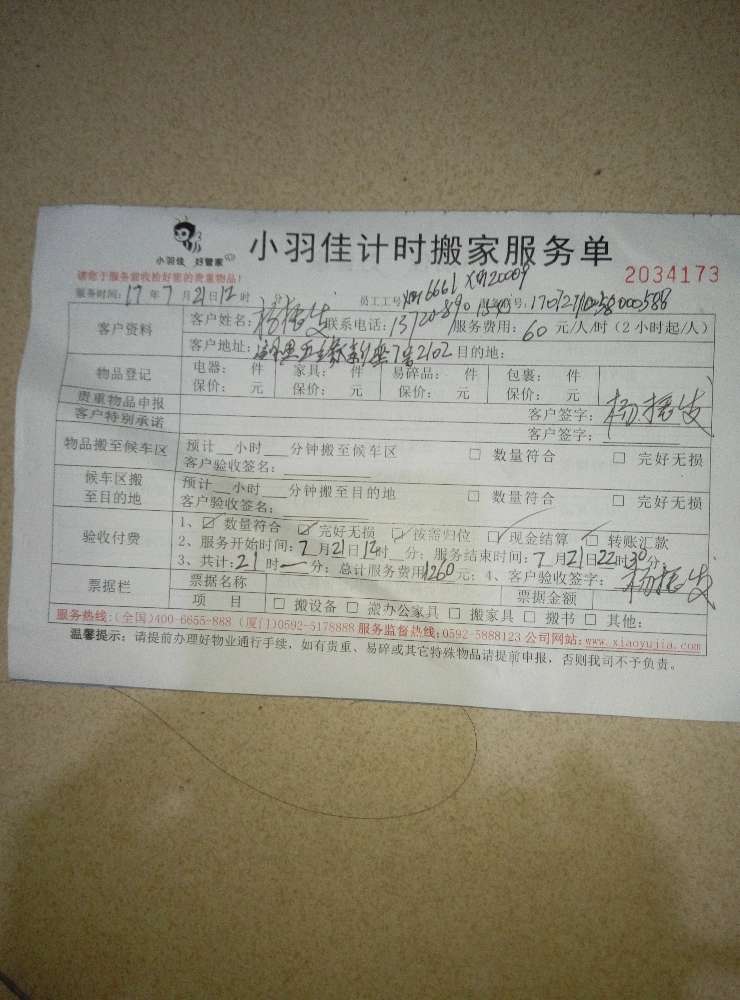 小羽佳 好管家
小羽佳计时搬家服务单
请您于服务前收检好您的贵重物品!
2034173
服务时间: 17年7月21日12时 分 员工工号: 6661
客户资料
客户姓名: 杨振发 联系电话: 服务费用: 60 元/人/时(2小时起/人)
客户地址: 2102 目的地:
物品登记
电器: 件 家具: 件 易碎品: 件 包裹: 件
保价: 元 保价: 元 保价: 元 保价: 元
贵重物品申报 客户签字: 杨振发
客户特别承诺 客户签字:
物品搬至候车区
预计__小时___分钟搬至候车区 □ 数量符合 □ 完好无损
客户验收签名:
候车区搬至目的地
预计__小时___分钟搬至目的地 □ 数量符合 □ 完好无损
客户验收签名:
验收付费
1、☑ 数量符合 ☑ 完好无损 ☑ 按需归位 ☑ 现金结算 □ 转账汇款
2、服务开始时间: 7月21日12时__分; 服务结束时间: 7月21日22时30分
3、共计: 21时__分; 总计服务费用1260元; 4、客户验收签字: 杨振发
票据栏
票据名称 票据金额
项 目 □ 搬设备 □ 搬办公家具 □ 搬家具 □ 搬书 □ 其他:
服务热线:(全国)400-6655-888 (厦门)0592-5178888 服务监督热线:0592-5888123 公司网站:www.xiaoyujia.com
温馨提示: 请提前办理好物业通行手续，如有贵重、易碎或其它特殊物品请提前申报，否则我司不予负责。